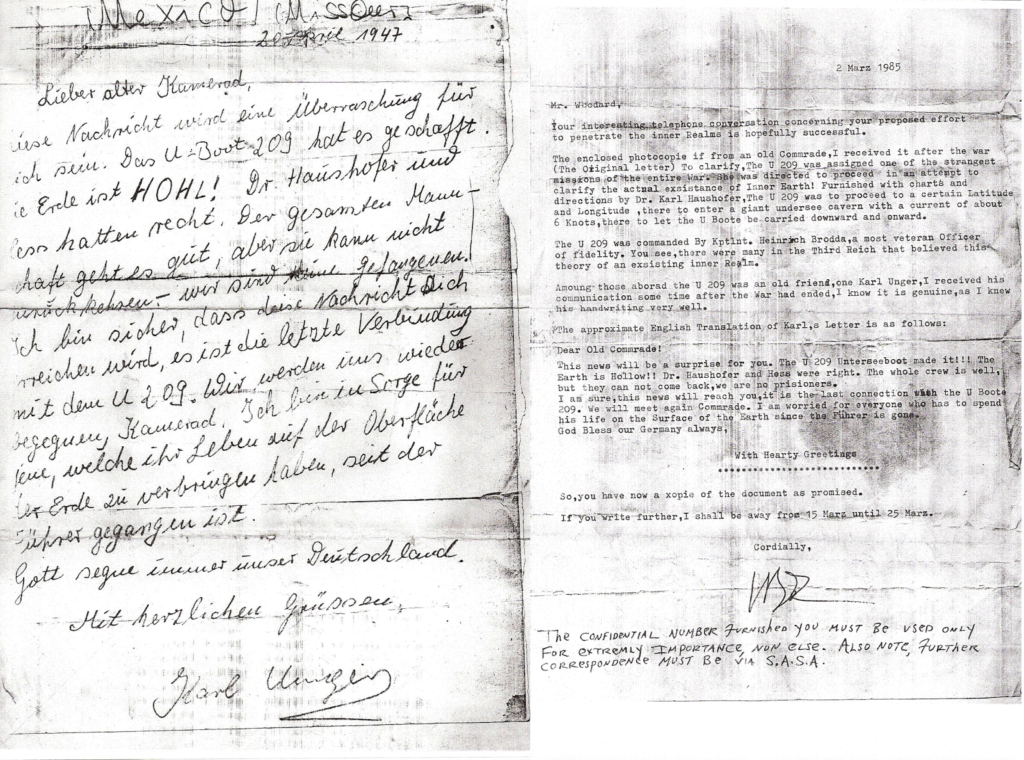 (Mexico) (Missouri)
20 April 1947
Lieber alter Kamerad,
iese Nachricht wird eine Überraschung für
ich sein. Das U-Boot 209 hat es geschafft.
ie Erde ist HOHL! Dr. Haushofer und
ess hatten recht. Der gesamten Mann-
haft geht es gut, aber sie kann nicht
urückkehsen - wir sind keine Gefangenen.
Ich bin sicher, dass diese Nachricht Dich
rreichen wird, es ist die letzte Verbindung
mit dem U 209. Wir werden uns wieder
begegnen, Kamerad. Ich bin in Sorge für
eine, welche ihr Leben auf der Oberfläche
der Erde zu verbringen haben, seit der
Führer gegangen ist.
Gott segne immer unser Deutschland.
Mit herzlichen Grüssen,
Karl Unger
2 Marz 1985
Mr. Woodard,
Your interesting telephone conversation concerning your proposed effort
to penetrate the inner Realms is hopefully successful.
The enclosed photocopie if from an old Commrade,I received it after the war
(The Original letter) To clarify,The U 209 was assigned one of the strangest
missions of the entire War. She was directed to proceed in an attempt to
clarify the actual exsistance of Inner Earth! Furnished with charts and
directions by Dr. Karl Haushofer,The U 209 was to proceed to a certain Latitude
and Longitude ,there to enter a giant undersee cavern with a current of about
6 Knots,there to let the U Boote be carried downward and onward.
The U 209 was commanded By Kptlnt. Heinrich Brodda,a most veteran Officer
of fidelity. You see,there were many in the Third Reich that believed this
theory of an exsisting inner Realm.
Amoung those aborad the U 209 was an old friend,one Karl Unger,I received his
communication some time after the War had ended,I know it is genuine,as I knew
his handwriting very well.
The approximate English Translation of Karl,s Letter is as follows:
Dear Old Commrade!
This news will be a surprise for you. The U 209 Unterseeboot made it!!! The
Earth is Hollow!! Dr. Haushofer and Hess were right. The whole crew is well,
but they can not come back,we are no prisioners.
I am sure,this news will reach you,it is the last connection with the U Boote
209. We will meet again Commrade. I am worried for everyone who has to spend
his life on the Surface of the Earth since the Führer is gone.
God Bless our Germany always,
With Hearty Greetings
So,you have now a xopie of the document as promised.
If you write further,I shall be away from 15 Marz until 25 Marz.
Cordially,
THE CONFIDENTIAL NUMBER FURNISHED YOU MUST BE USED ONLY
FOR EXTREMLY IMPORTANCE, NON ELSE. ALSO NOTE, FURTHER
CORRESPONDENCE MUST BE VIA S.A.S.A.